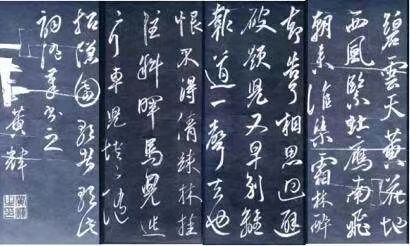 碧雲天黄花地
西風緊北雁南飛
朝來誰染霜林醉
却告了相思迴避
破題兒又早別離
報道一聲去也
恨不得倩疎林挂
住斜暉馬兒迍
行車兒
招隱
書之
黄輝